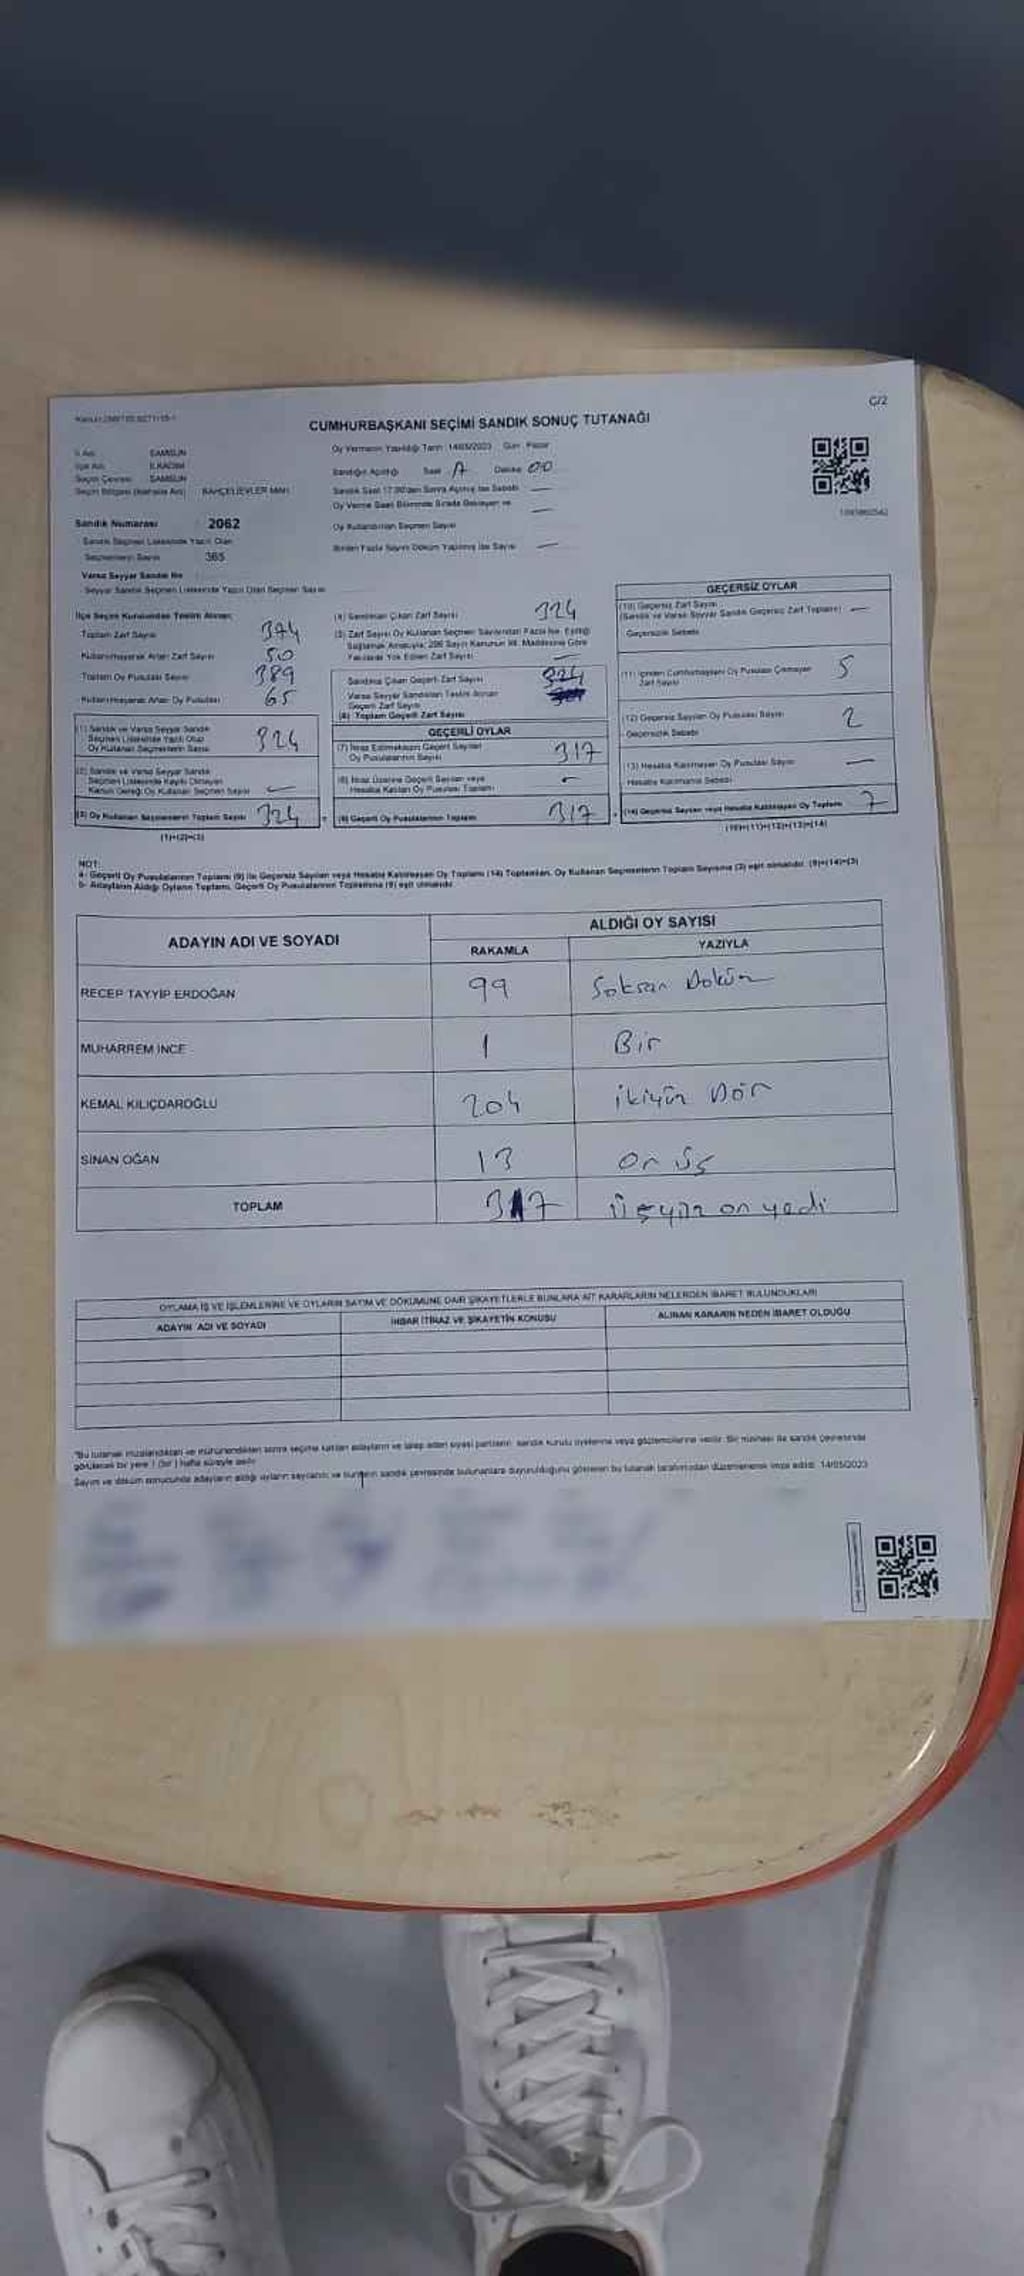 C/2
CUMHURBAŞKANI SEÇİMİ SANDIK SONUÇ TUTANAĞI
İl Adı SAMSUN
İlçe Adı İLKADIM
Seçim Çevresi SAMSUN
Seçim Bölgesi (Mahalle Adı) BAHÇELİEVLER MAH.
Sandık Numarası 2062
Sandık Seçmen Listesinde Yazılı Olan
Seçmenlerin Sayısı 365
Varsa Seyyar Sandık No
Seyyar Sandık Seçmen Listesinde Yazılı Olan Seçmen Sayısı
Oy Vermenin Yapıldığı Tarih 14/05/2023 Gün Pazar
Sandığın Açıldığı Saat Dakika 00
Sandık Saat 17.00'den Sonra Açılmış İse Sebebi —
Oy Verme Saati Bitiminde Sırada Bekleyen ve —
Oy Kullandırılan Seçmen Sayısı
Birden Fazla Sayım Döküm Yapılmış İse Sayısı —
İlçe Seçim Kurulundan Teslim Alınan;
Toplam Zarf Sayısı 374
Kullanılmayarak Artan Zarf Sayısı 50
Toplam Oy Pusulası Sayısı 389
Kullanılmayarak Artan Oy Pusulası 65
(1) Sandık ve Varsa Seyyar Sandık
Seçmen Listesinde Yazılı Olup
Oy Kullanan Seçmenlerin Sayısı 324
(2) Sandık ve Varsa Seyyar Sandık
Seçmen Listesinde Kayıtlı Olmayan
Kanun Gereği Oy Kullanan Seçmen Sayısı —
(3) Oy Kullanan Seçmenlerin Toplam Sayısı 324
(1)+(2)=(3)
(4) Sandıktan Çıkan Zarf Sayısı 324
(5) Zarf Sayısı Oy Kullanan Seçmen Sayısından Fazla İse, Eşitliği
Sağlamak Amacıyla; 298 Sayılı Kanunun 98. Maddesine Göre
Yakılarak Yok Edilen Zarf Sayısı —
Sandıkta Çıkan Geçerli Zarf Sayısı 324
Varsa Seyyar Sandıktan Teslim Alınan
Geçerli Zarf Sayısı
(6) Toplam Geçerli Zarf Sayısı
GEÇERLİ OYLAR
(7) İtiraz Edilmeksizin Geçerli Sayılan
Oy Pusulalarının Sayısı 317
(8) İtiraz Üzerine Geçerli Sayılan veya
Hesaba Katılan Oy Pusulası Toplamı —
(9) Geçerli Oy Pusulalarının Toplamı 317
GEÇERSİZ OYLAR
(10) Geçersiz Zarf Sayısı —
(Sandık ve Varsa Seyyar Sandık Geçersiz Zarf Toplamı)
Geçersizlik Sebebi
(11) İçinden Cumhurbaşkanı Oy Pusulası Çıkmayan 5
Zarf Sayısı
(12) Geçersiz Sayılan Oy Pusulası Sayısı 2
Geçersizlik Sebebi
(13) Hesaba Katılmayan Oy Pusulası Sayısı —
Hesaba Katılmama Sebebi
(14) Geçersiz Sayılan veya Hesaba Katılmayan Oy Toplamı 7
(10)+(11)+(12)+(13)=(14)
NOT:
a- Geçerli Oy Pusulalarının Toplamı (9) ile Geçersiz Sayılan veya Hesaba Katılmayan Oy Toplamı (14) Toplamları, Oy Kullanan Seçmenlerin Toplam Sayısına (3) eşit olmalıdır. (9)+(14)=(3)
b- Adayların Aldığı Oyların Toplamı, Geçerli Oy Pusulalarının Toplamına (9) eşit olmalıdır.
ADAYIN ADI VE SOYADI ALDIĞI OY SAYISI
RAKAMLA YAZIYLA
RECEP TAYYİP ERDOĞAN 99 Soksan Dokuz
MUHARREM İNCE 1 Bir
KEMAL KILIÇDAROĞLU 204 ikiyüz Dör
SİNAN OĞAN 13 on üç
TOPLAM 317 üçyüz on yedi
OYLAMA İŞ VE İŞLEMLERİNE VE OYLARIN SAYIM VE DÖKÜMÜNE DAİR ŞİKAYETLERLE BUNLARA AİT KARARLARIN NELERDEN İBARET BULUNDUKLARI
ADAYIN ADI VE SOYADI İHBAR İTİRAZ VE ŞİKAYETİN KONUSU ALINAN KARARIN NEDEN İBARET OLDUĞU
"Bu tutanak imzalandıktan ve mühürlendikten sonra seçime katılan adayların ve talep eden siyasi partilerin sandık kurulu üyelerine veya gözlemcilerine verilir. Bir nüshası da sandık çevresinde
görülecek bir yere 1 (bir) hafta süreyle asılır.
Sayım ve döküm sonucunda adayların aldığı oyların sayılarını ve bunların sandık çevresinde bulunanlara duyurulduğunu gösteren bu tutanak tarafımızdan düzenlenerek imza edildi. 14/05/2023